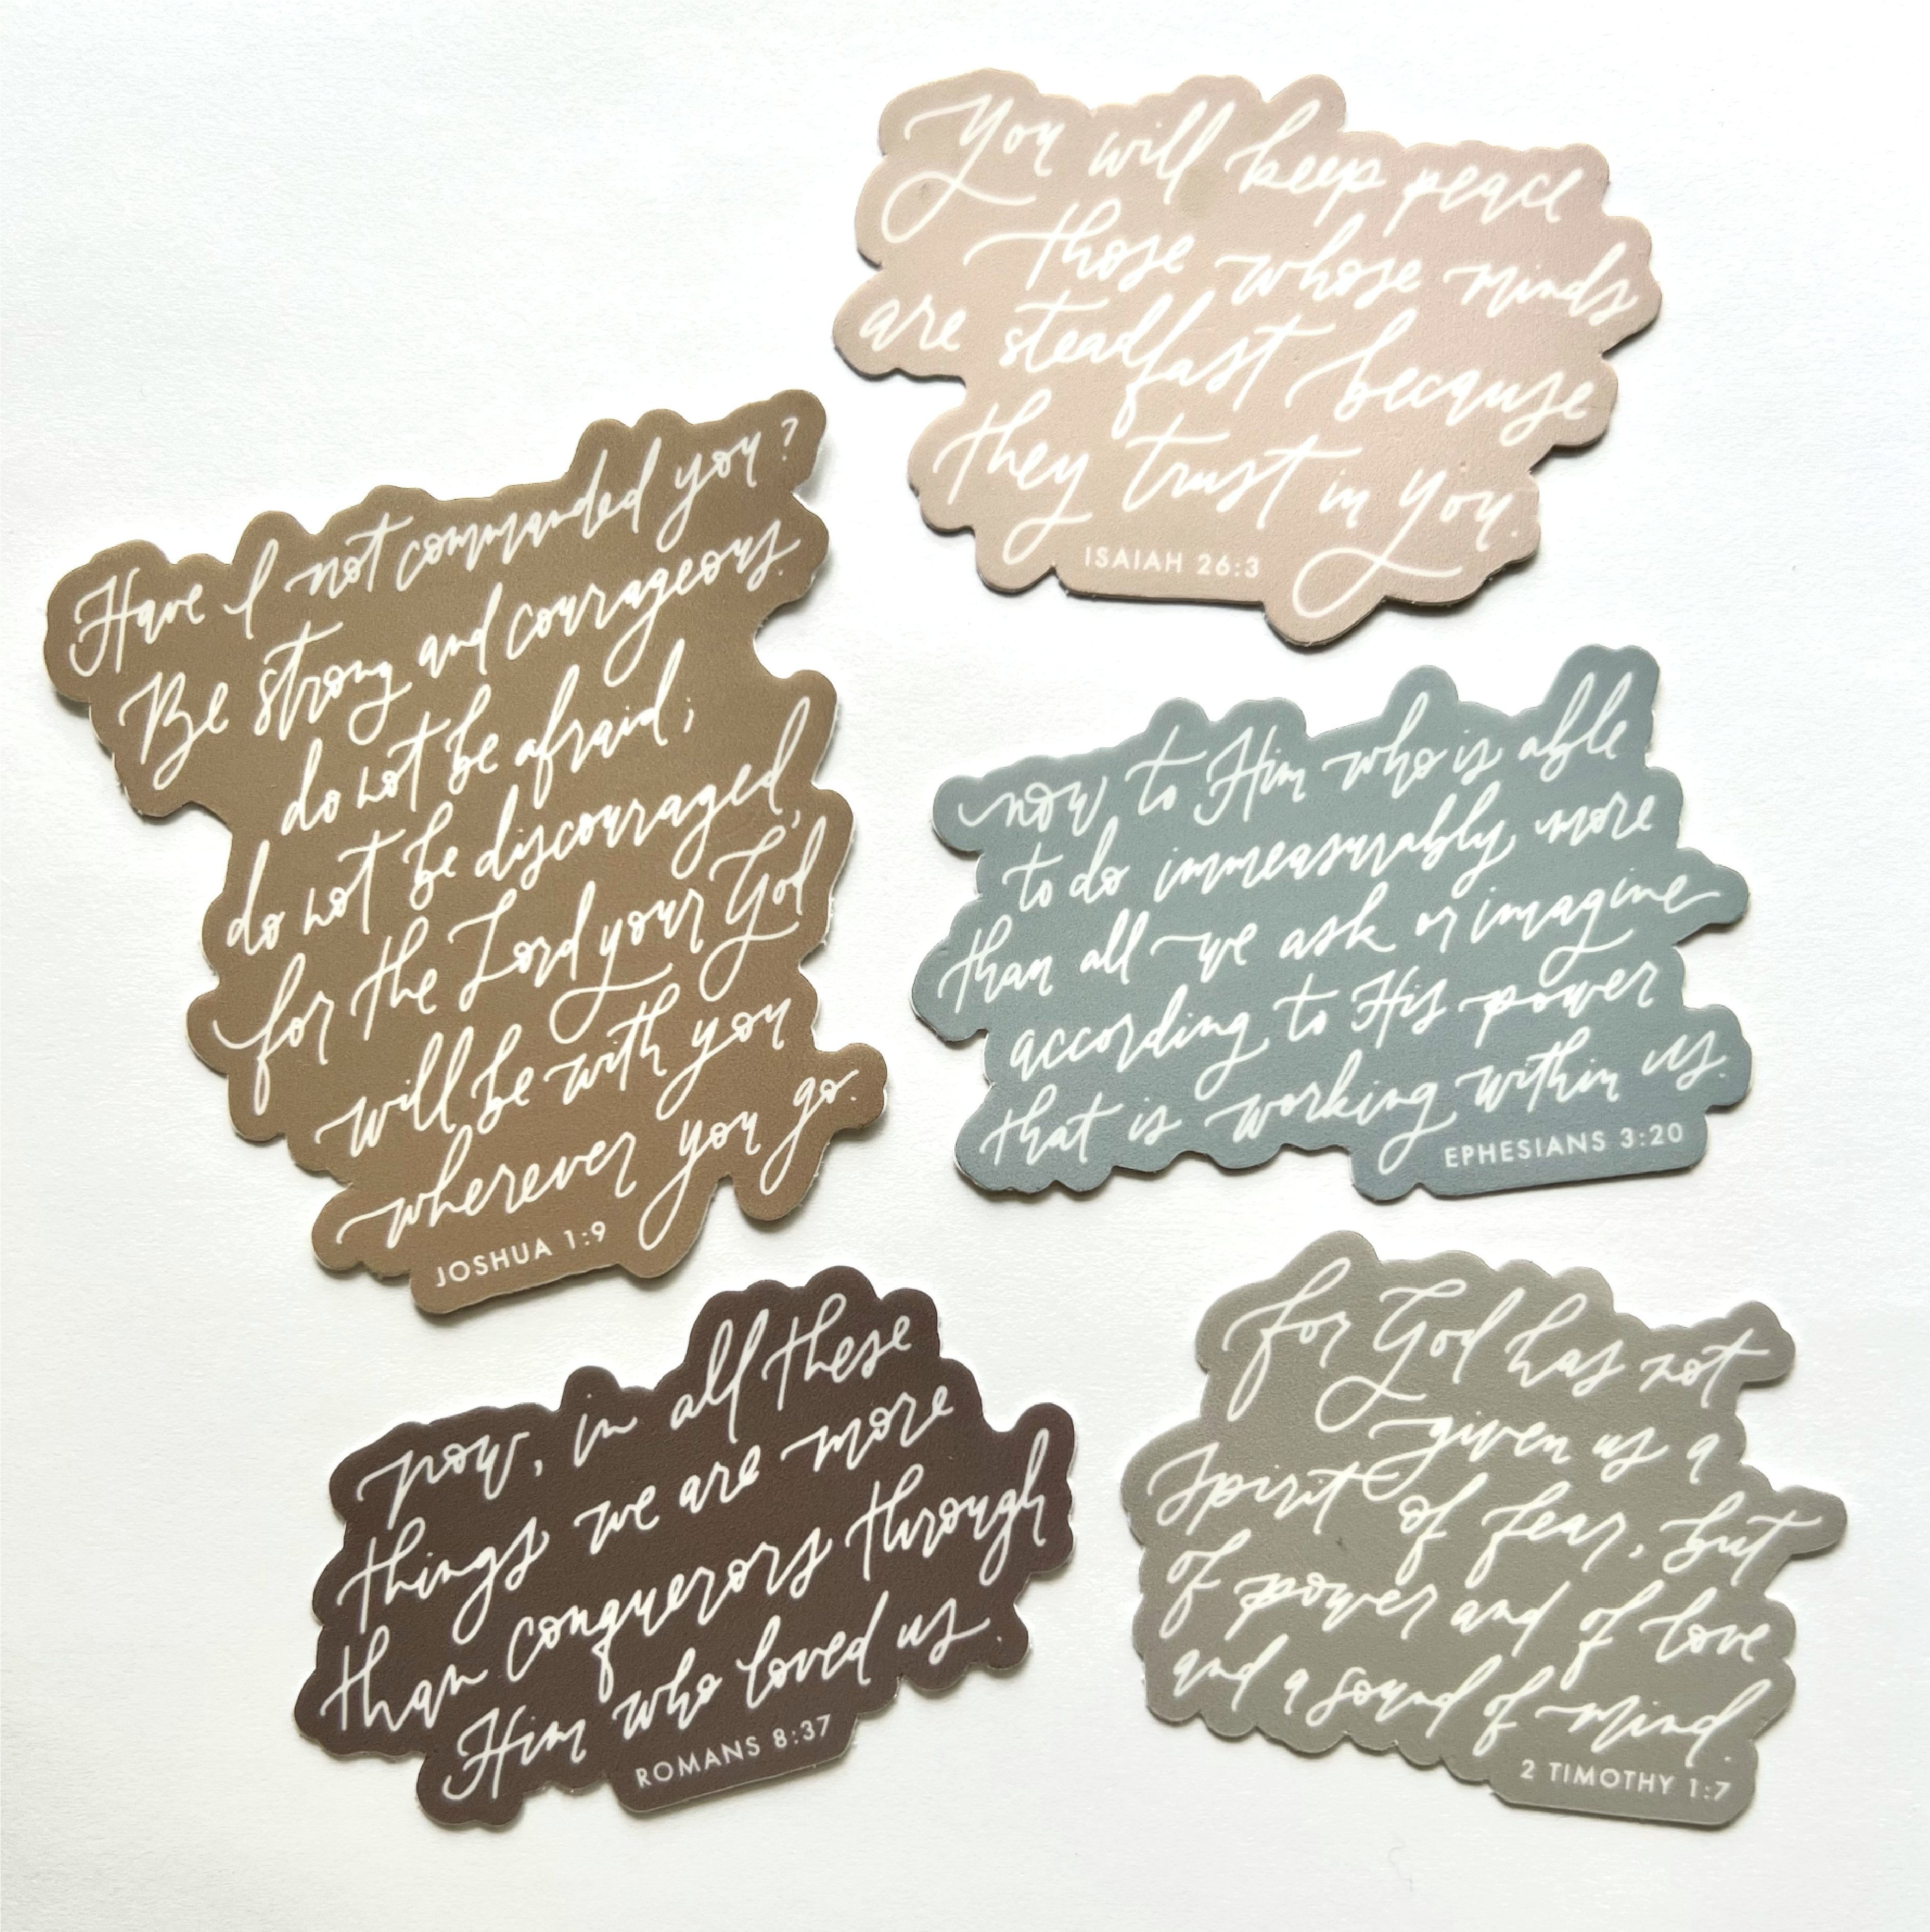 You will keep peace
those whose minds
are steadfast because
they trust in You.
ISAIAH 26:3
Have I not commanded you?
Be strong and courageous.
do not be afraid;
do not be discouraged,
for the Lord your God
will be with you
wherever you go.
JOSHUA 1:9
now to Him who is able
to do immeasurably more
than all we ask or imagine
according to His power
that is working within us.
EPHESIANS 3:20
now, in all these
things we are more
than conquerors through
Him who loved us.
ROMANS 8:37
for God has not
given us a
spirit of fear, but
of power and of love
and a sound of mind.
2 TIMOTHY 1:7